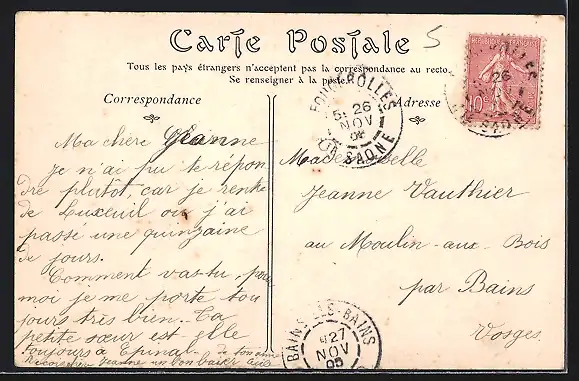 Carte Postale
5
Tous les pays étrangers n'acceptent pas la correspondance au recto
Se renseigner à la poste.
Correspondance
Adresse
RÉPUBLIQUE FRANÇAISE
10c
FOUGEROLLES
5E 26
NOV
Hte SAONE
Ma chère Jeanne
Je n'ai pu te répon
dre plutôt, car je rentre
de Luxeuil ou j'ai
passé une quinzaine
de jours.
Comment vas-tu, pour
moi je me porte tou
jours très bien. Ta
petite sœur est elle
toujours à Epinal.
Jeanne un bon baiser
Mademoiselle
Jeanne Vauthier
au Moulin-aux-Bois
par Bains
Vosges.
BAINS-LES-BAINS
27
NOV
05